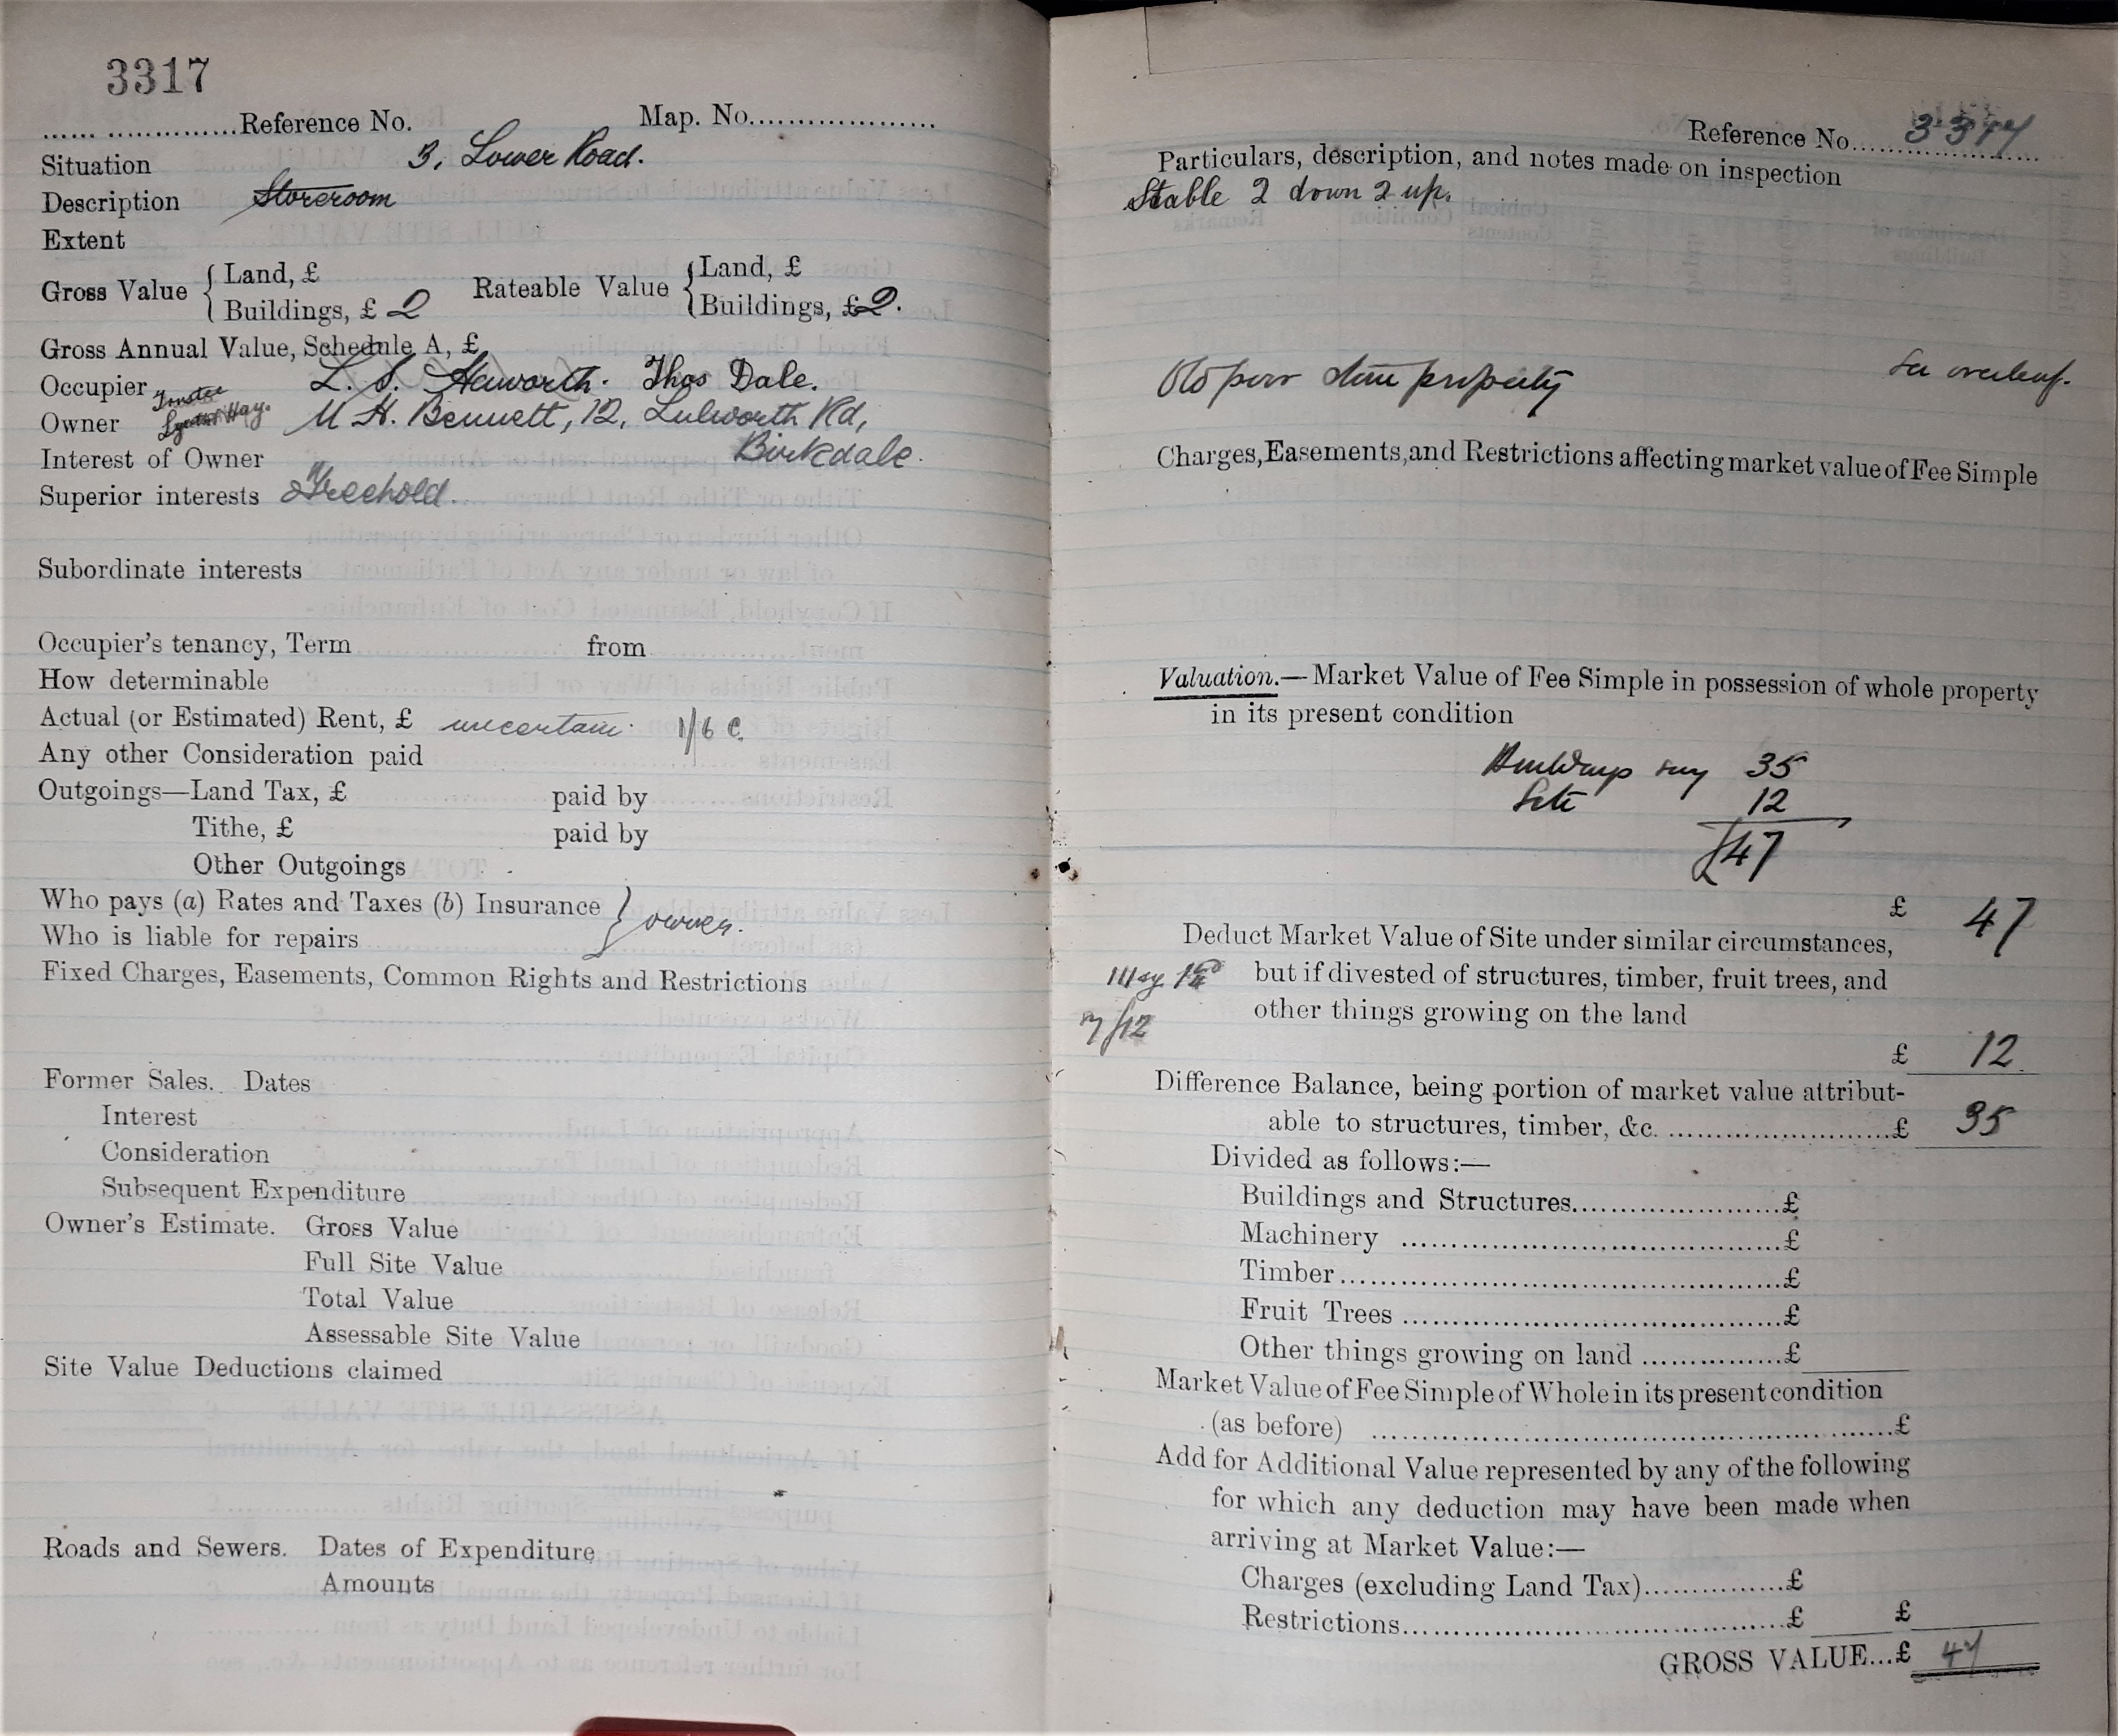 3317
Reference No. Map. No.
Situation 3, Lower Road.
Description Storeroom
Extent
Gross Value { Land, £
Buildings, £ 2
Rateable Value { Land, £
Buildings, £ 2.
Gross Annual Value, Schedule A, £
Occupier L. S. Haworth. Thos Dale.
Trustee
Owner M H. Bennett, 12, Lulworth Rd,
Birkdale.
Interest of Owner
Superior interests Freehold.
Subordinate interests
Occupier's tenancy, Term from
How determinable
Actual (or Estimated) Rent, £ uncertain. 1/6
Any other Consideration paid
Outgoings—Land Tax, £ paid by
Tithe, £ paid by
Other Outgoings
Who pays (a) Rates and Taxes (b) Insurance } owner.
Who is liable for repairs
Fixed Charges, Easements, Common Rights and Restrictions
Former Sales. Dates
Interest
Consideration
Subsequent Expenditure
Owner's Estimate. Gross Value
Full Site Value
Total Value
Assessable Site Value
Site Value Deductions claimed
Roads and Sewers. Dates of Expenditure
Amounts
Reference No.
Particulars, description, and notes made on inspection
Stable 2 down 2 up.
Old poor slum property See overleaf.
Charges, Easements, and Restrictions affecting market value of Fee Simple
Valuation.—Market Value of Fee Simple in possession of whole property
in its present condition
Buildings say 35
Site 12
£47
£ 47
Deduct Market Value of Site under similar circumstances,
but if divested of structures, timber, fruit trees, and
other things growing on the land
£ 12
Difference Balance, being portion of market value attribut-
able to structures, timber, &c. £ 35
Divided as follows:—
Buildings and Structures £
Machinery £
Timber £
Fruit Trees £
Other things growing on land £
Market Value of Fee Simple of Whole in its present condition
(as before) £
Add for Additional Value represented by any of the following
for which any deduction may have been made when
arriving at Market Value:—
Charges (excluding Land Tax) £
Restrictions £ £
GROSS VALUE...£ 47